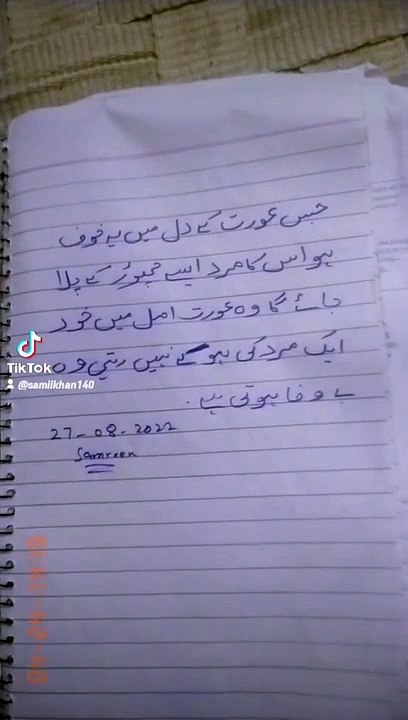 جس عورت کے دل میں یہ خوف
ہو اس کا مرد ایسے چھوڑ کے چلا
جائے گا وہ عورت اصل میں خود
ایک مرد کی ہو کے نہیں رہتی وہ
بے وفا ہوتی ہے.
27-08-2022
Samreen
TikTok
@samiikhan140